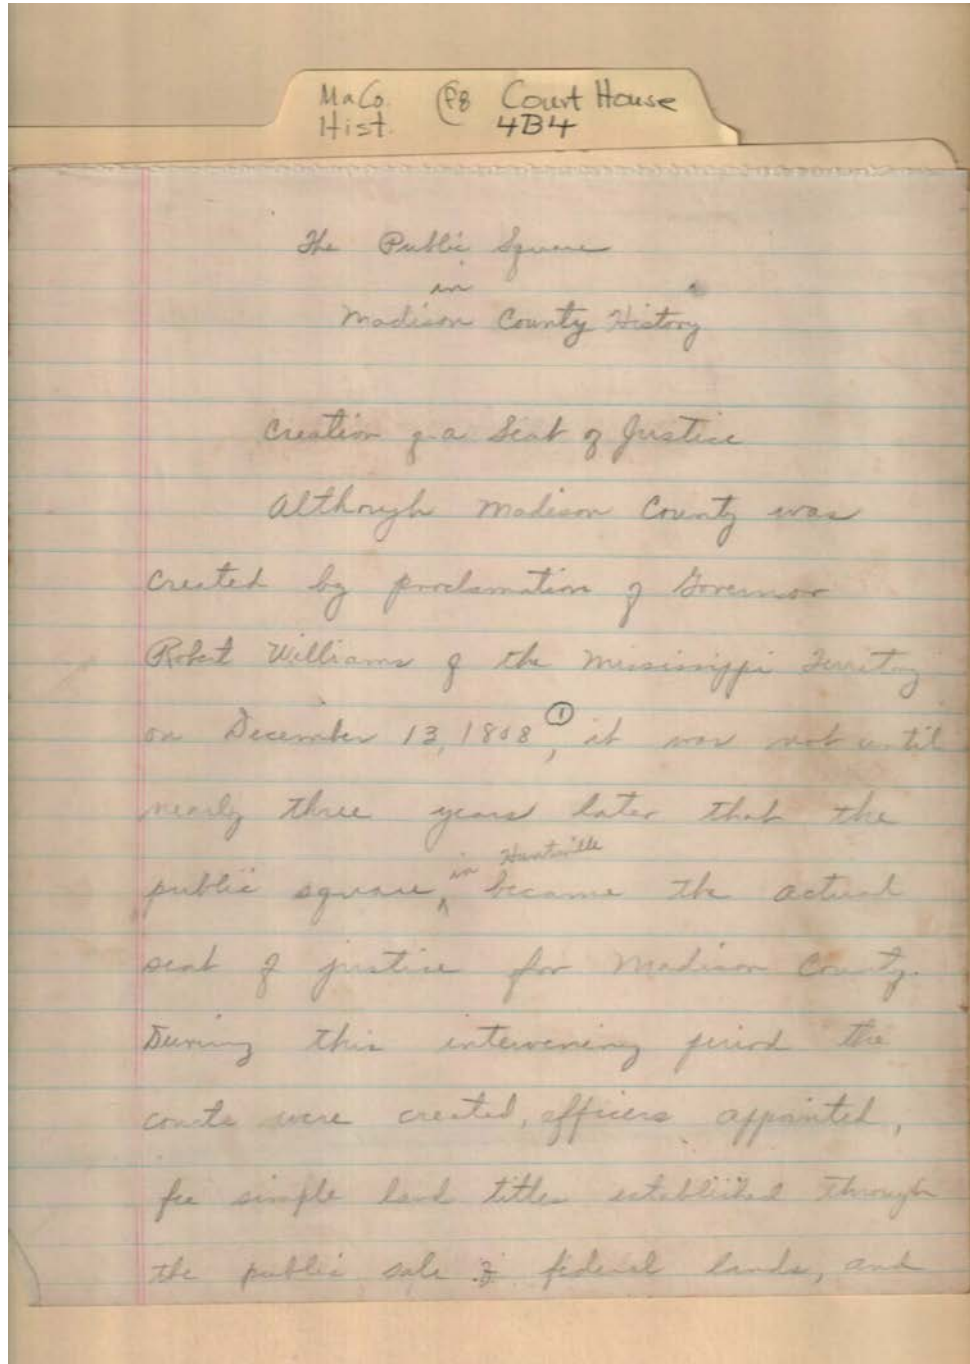 MaCo. P8 Court House
Hist. 4B4
The Public Square
in
Madison County History
Creation of a Seat of Justice
Although Madison County was
created by proclamation of Governor
Robert Williams of the Mississippi Territory
on December 13, 1808 ①, it was not until
nearly three years later that the
in Huntsville
public square, became the actual
seat of justice for Madison County.
During this intervening period the
courts were created, officers appointed,
fee simple land titles established through
the public sale of federal lands, and